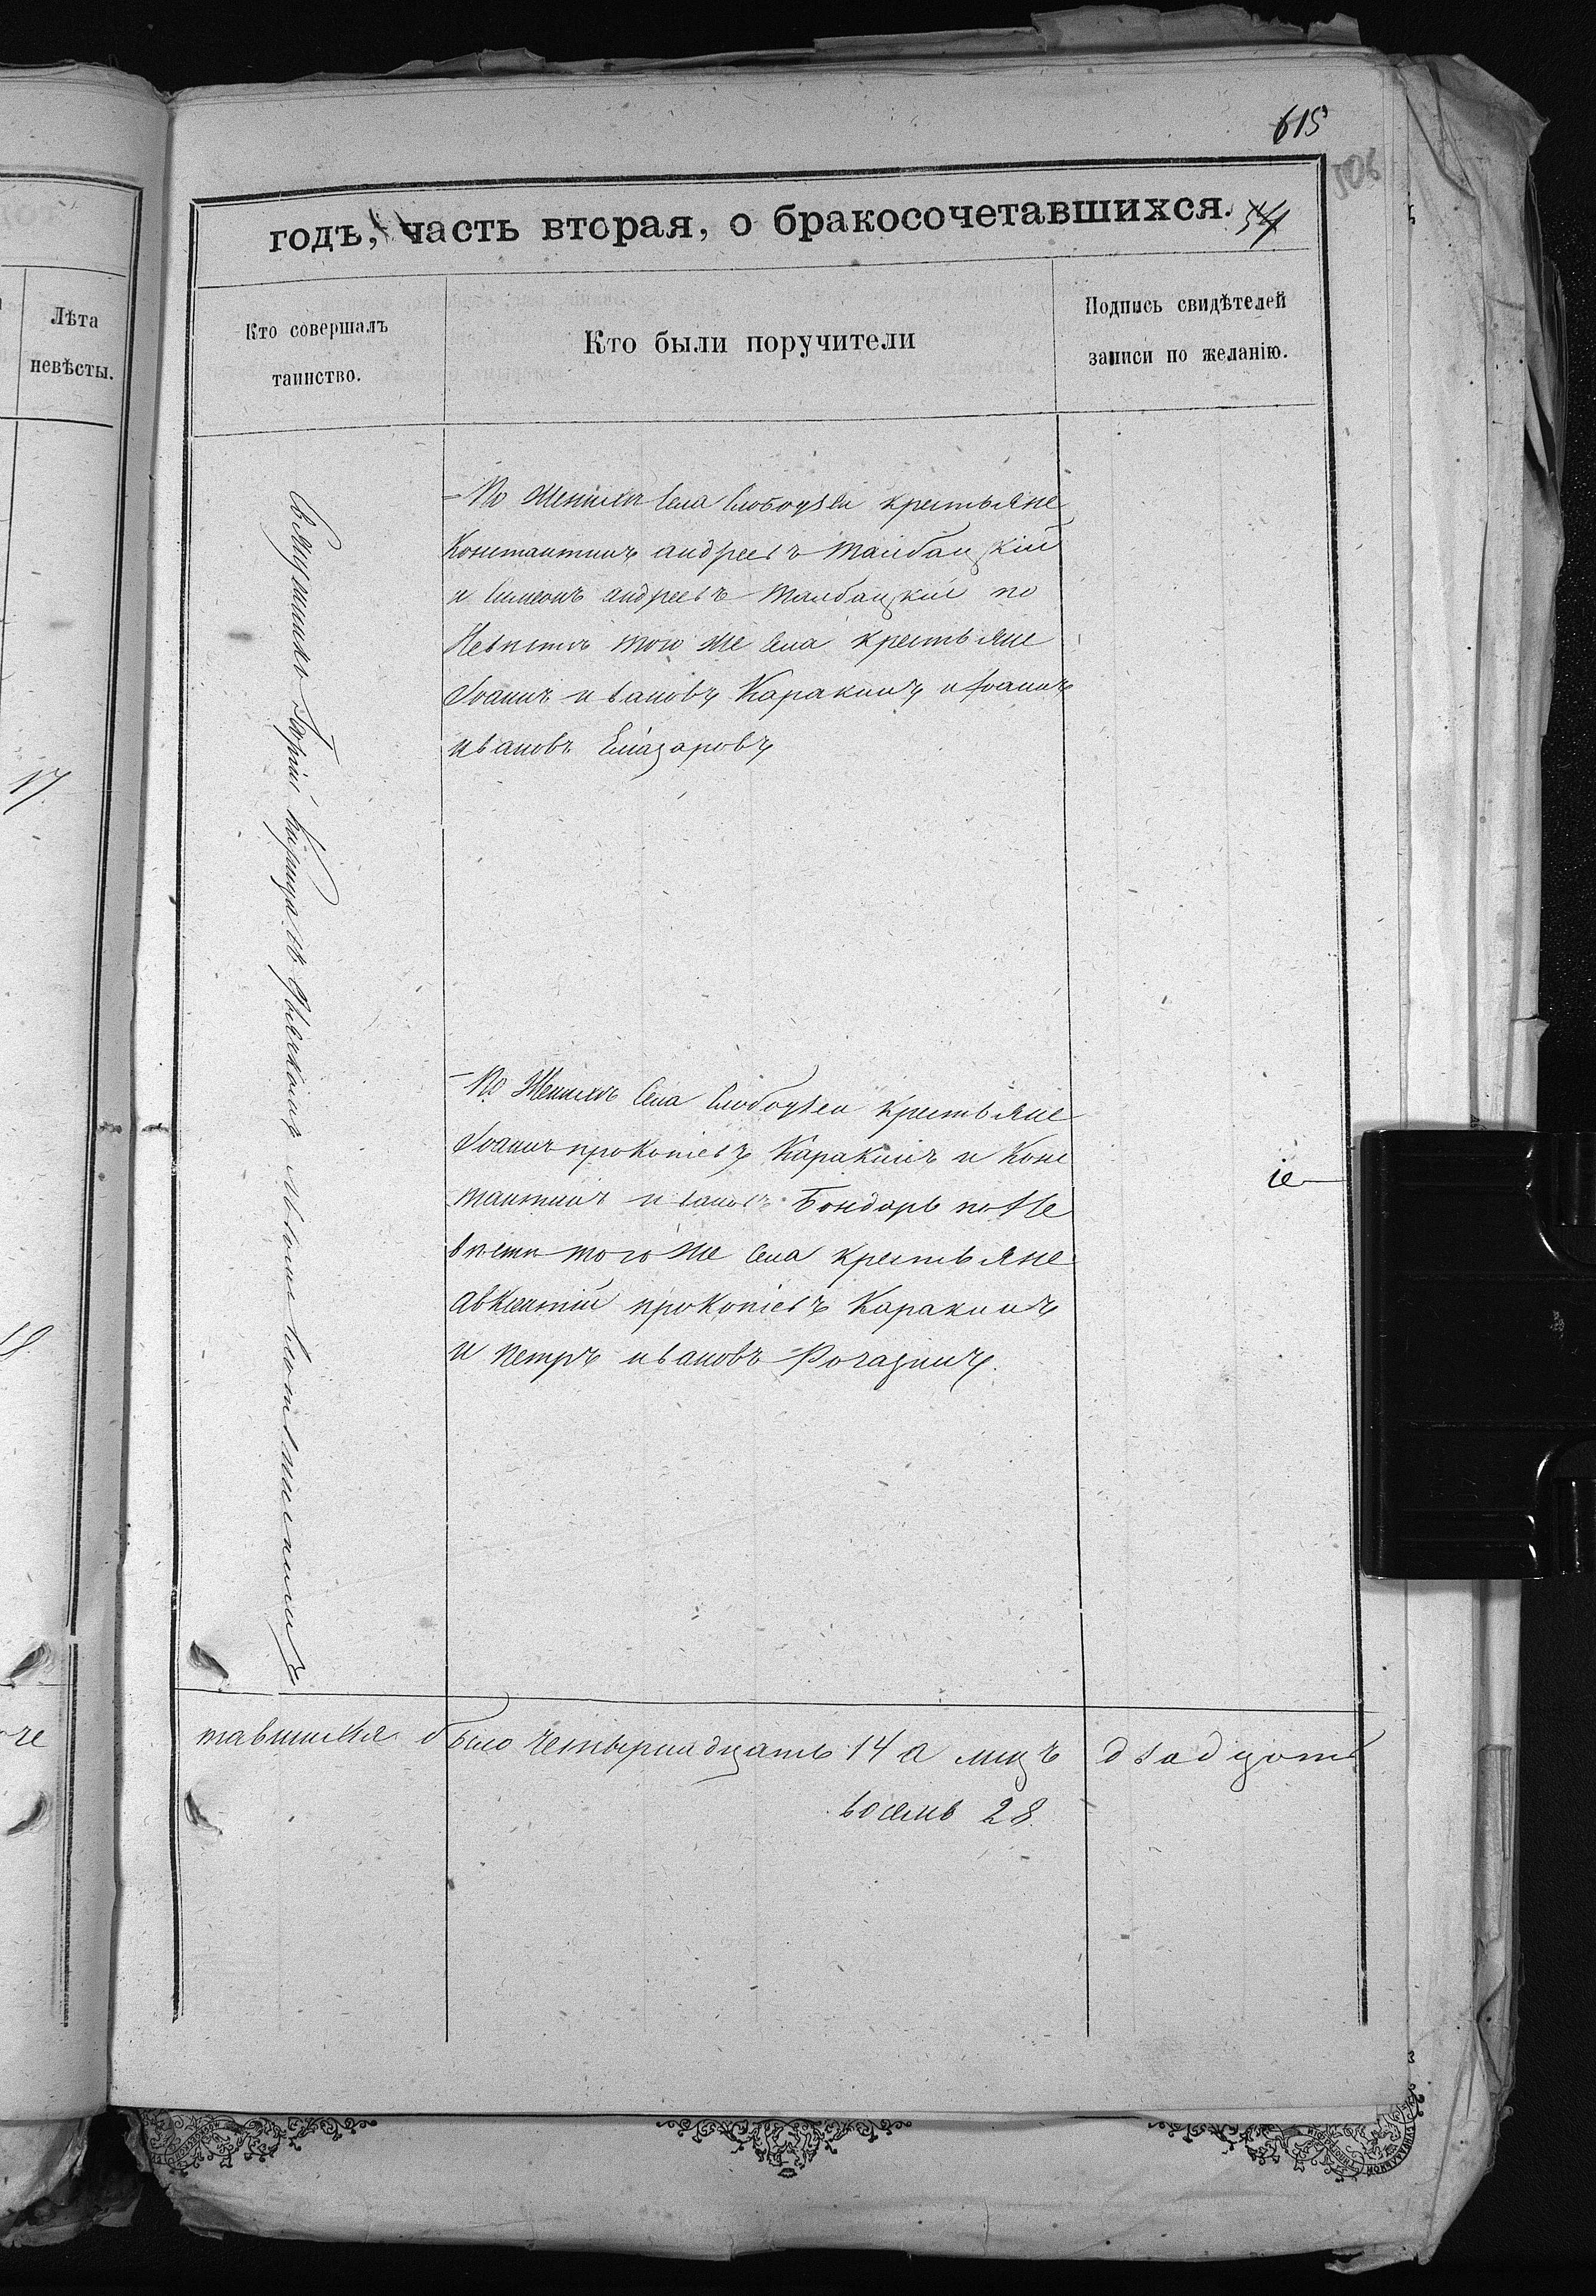 615
506
годъ, часть вторая, о бракосочетавшихся.
Лѣта
невѣсты.
Кто совершалъ
таинство.
Кто были поручители
Подпись свидѣтелей
записи по желанію.
17
По Женихѣ села Слободзеи крестьяне
Константинъ андреевъ Талбацкій
и Симеонъ андреевъ Талбацкій по
Невѣстѣ того же села крестьяне
Іоаннъ ивановъ Каракашъ и Іоаннъ
ивановъ Елазаровъ
Священникъ Георгій
По Женихѣ села Слободзеи крестьяне
Іоаннъ прокопіевъ Каракашъ и Конс
тантинъ ивановъ Бондарь по Не
вѣстѣ того же села крестьяне
авксентій прокопіевъ Каракашъ
и петръ ивановъ
тавшихся было четырнадцать 14 а лицъ двадцать
восемь 28.